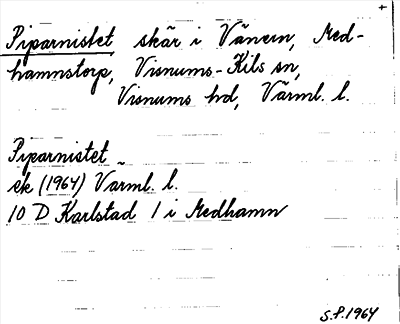 +
Piparnistet skär i Vänern, Med-
hamnstorp, Visnums-Kils sn,
Visnums hd, Värml. l.
Piparnistet
ek (1964) Värml. l.
10 D Karlstad 1 i Medhamn
S.P. 1964